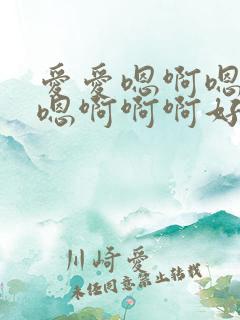 爱爱嗯啊嗯
嗯啊啊啊好
川崎爱
未经同意禁止转载